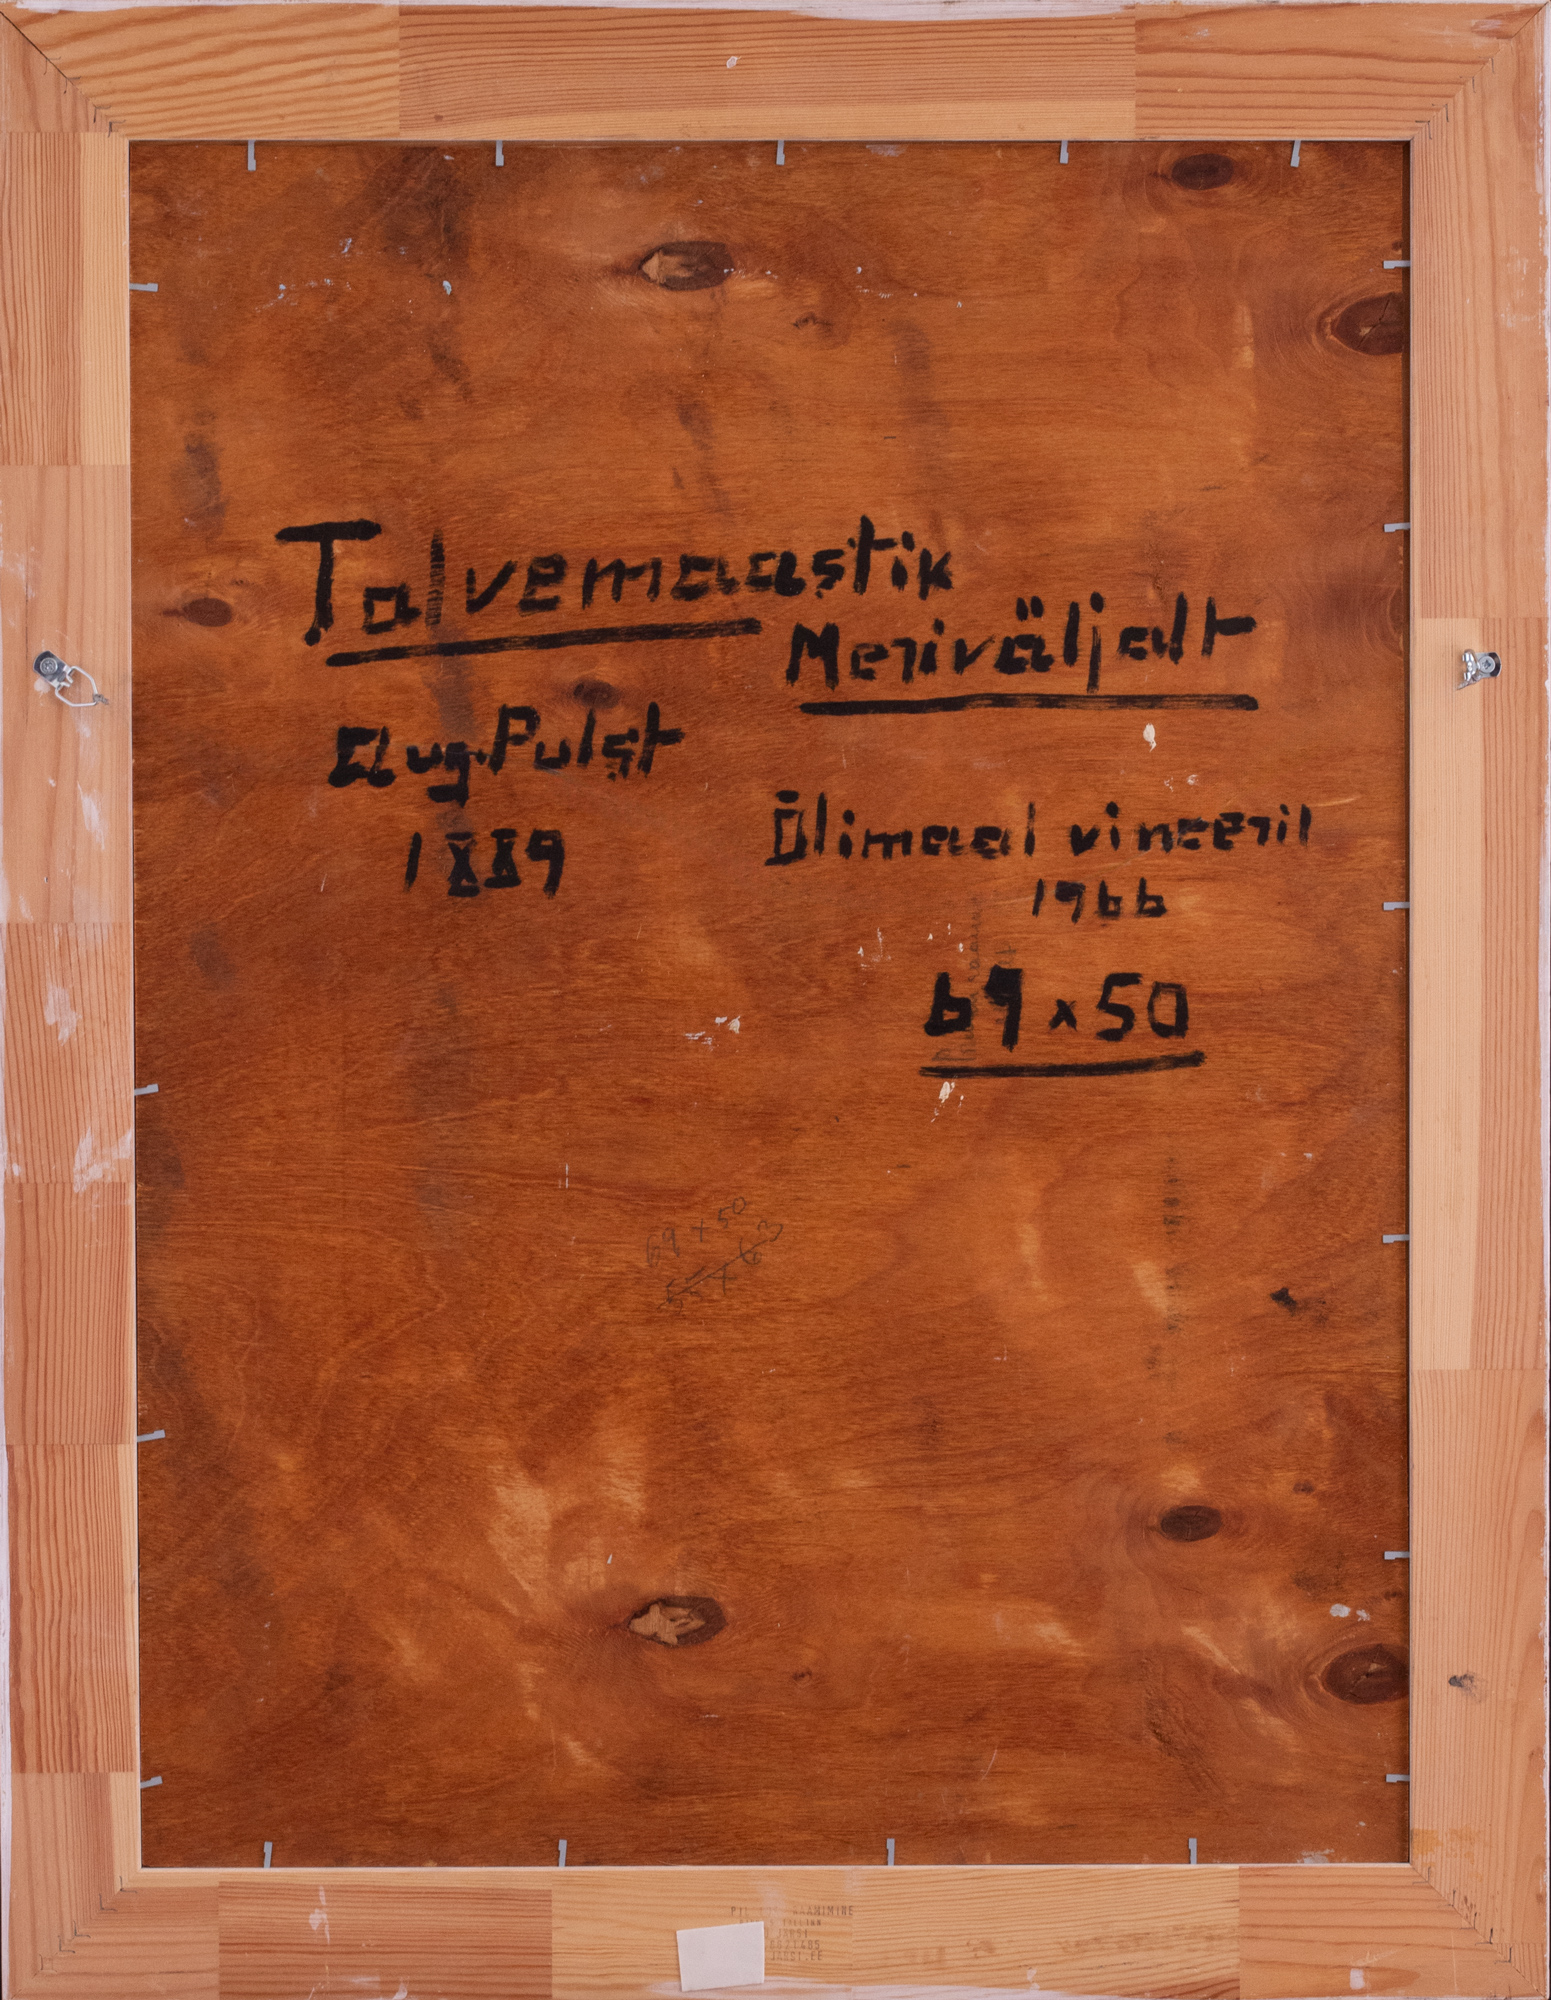 Talvemaastik
Meriväljalt
Aug. Pulst
1889
Õlimaal vineeril
1966
69 x 50
69 x 50
55 x 63